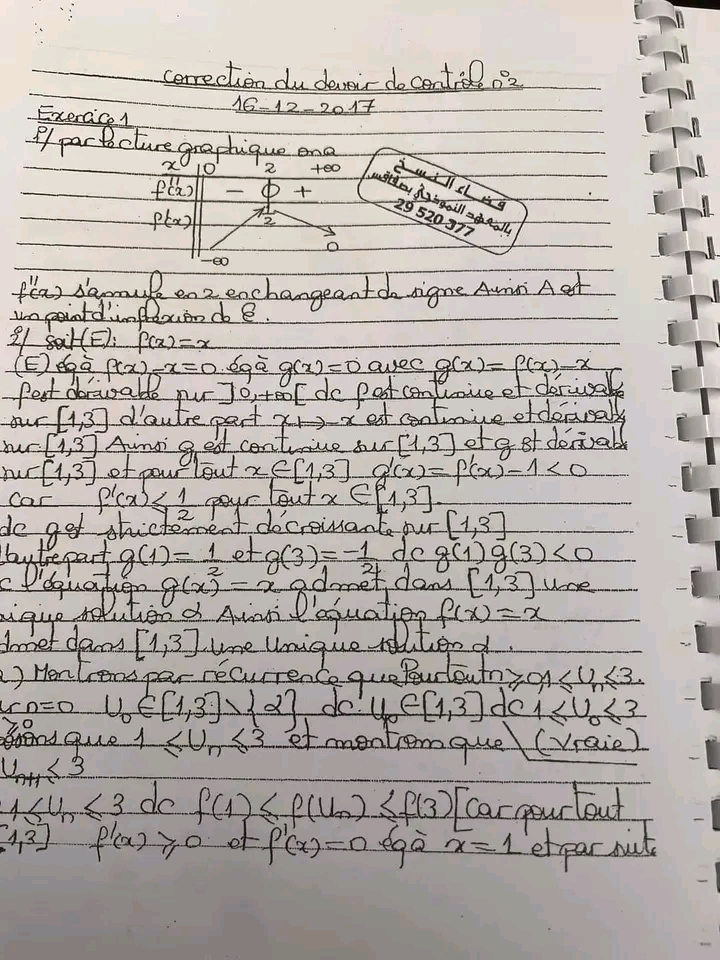 Correction du devoir de contrôle n°2
16-12-2017
Exercice 1
1°/ par lecture graphique on a
x 0 2 +∞
f''(x) - 0 +
f'(x) -∞ 1/2 0
فضاء النسخ
بالمعهد النموذجي بصفاقس
29 520 377
f''(x) s'annule en 2 en changeant de signe Ainsi A est
un point d'inflexion de ℰ.
2°/ soit (E): f(x) = x
(E) égà f(x)-x=0 égà g(x)=0 avec g(x)= f(x)-x
f est dérivable sur ]0,+∞[ dc f est continue et dérivable
sur [1,3] d'autre part x↦-x est continue et dérivable
sur [1,3] Ainsi g est continue sur [1,3] et g est dérivab
sur [1,3] et pour tout x∈[1,3] g'(x)= f'(x)-1<0
car f'(x)≤1/2 pour tout x ∈[1,3].
dc g est strictement décroissante sur [1,3]
'autre part g(1)= 1/2 et g(3)=-1/2 dc g(1)g(3)<0
c l'équation g(x) = x admet dans [1,3] une
nique solution α Ainsi l'équation f(x)=x
dmet dans [1,3] une unique solution α.
a) Montrons par récurrence que Pour tout n≥0, 1≤Un≤3.
ur n=0 U0∈[1,3]\{α} dc U0∈[1,3] dc 1≤U0≤3
≥0 (Vraie)
osons que 1≤Un≤3 et montrons que
Un+1≤3
1≤Un≤3 dc f(1)≤f(Un)≤f(3) [car pour tout
[1,3] f'(x)≥0 et f'(x)=0 égà x=1 et par suite